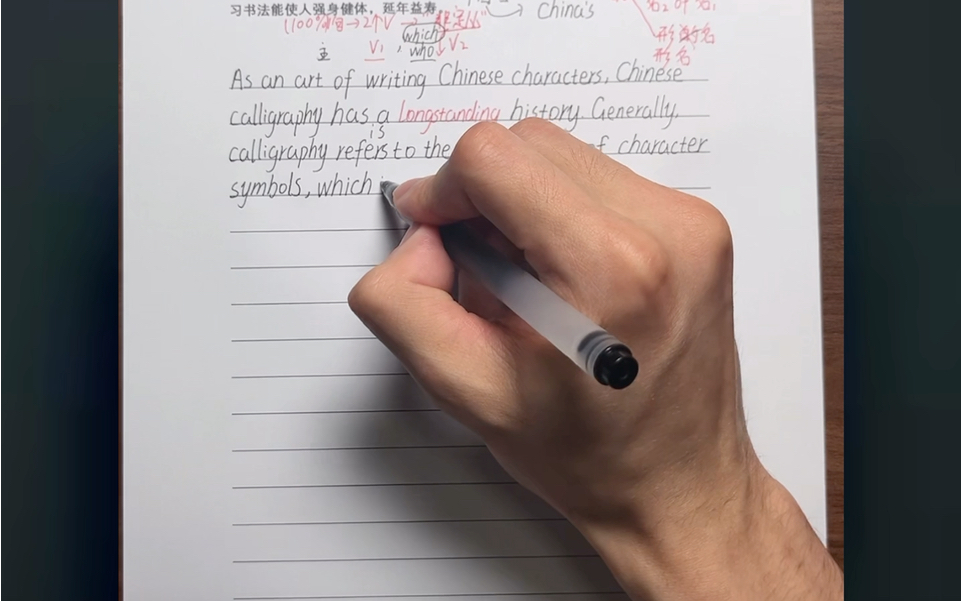 习书法能使人强身健体，延年益寿。
China's
(100%省→2个V→"非定从"
名2 of 名1
which
形 名
主 V1 , who V2
形 名
As an art of writing Chinese characters, Chinese
calligraphy has a longstanding history. Generally,
is
calligraphy refers to the of character
symbols, which